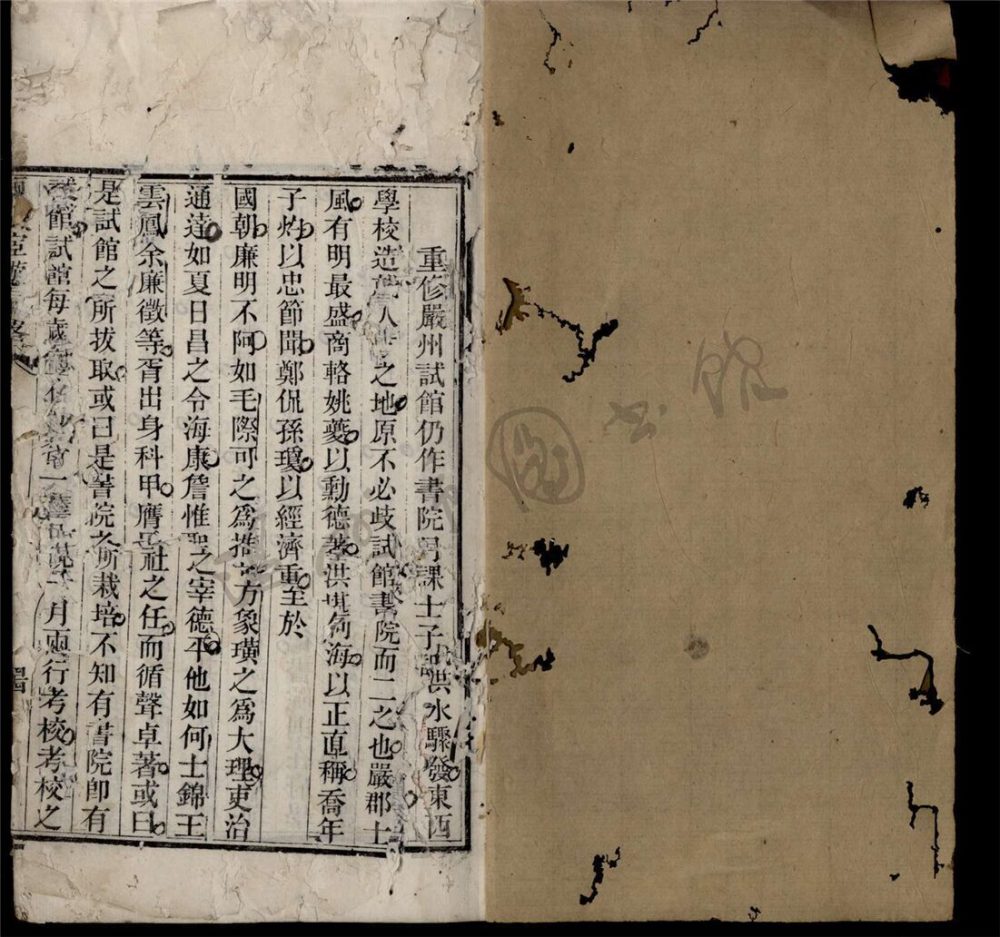 重修嚴州試館仍作書院月課士子記洪水驟發東西
學校造就人之地原不必歧試館書院而二之也嚴郡士
風有明最盛商輅姚夔以勳德著洪堪甸海以正直稱喬年
子灼以忠節聞鄭侃孫瓊以經濟重至於
國朝廉明不阿如毛際可之為推方象璜之為大理吏治
通達如夏日昌之令海康詹惟聖之宰德平他如何士錦王
雲鳳余廉徵等胥出身科甲膺民社之任而循聲卓著或曰
是試館之所拔取或曰是書院之所栽培不知有書院即有
試館試館每歲一月兩行考校考校之